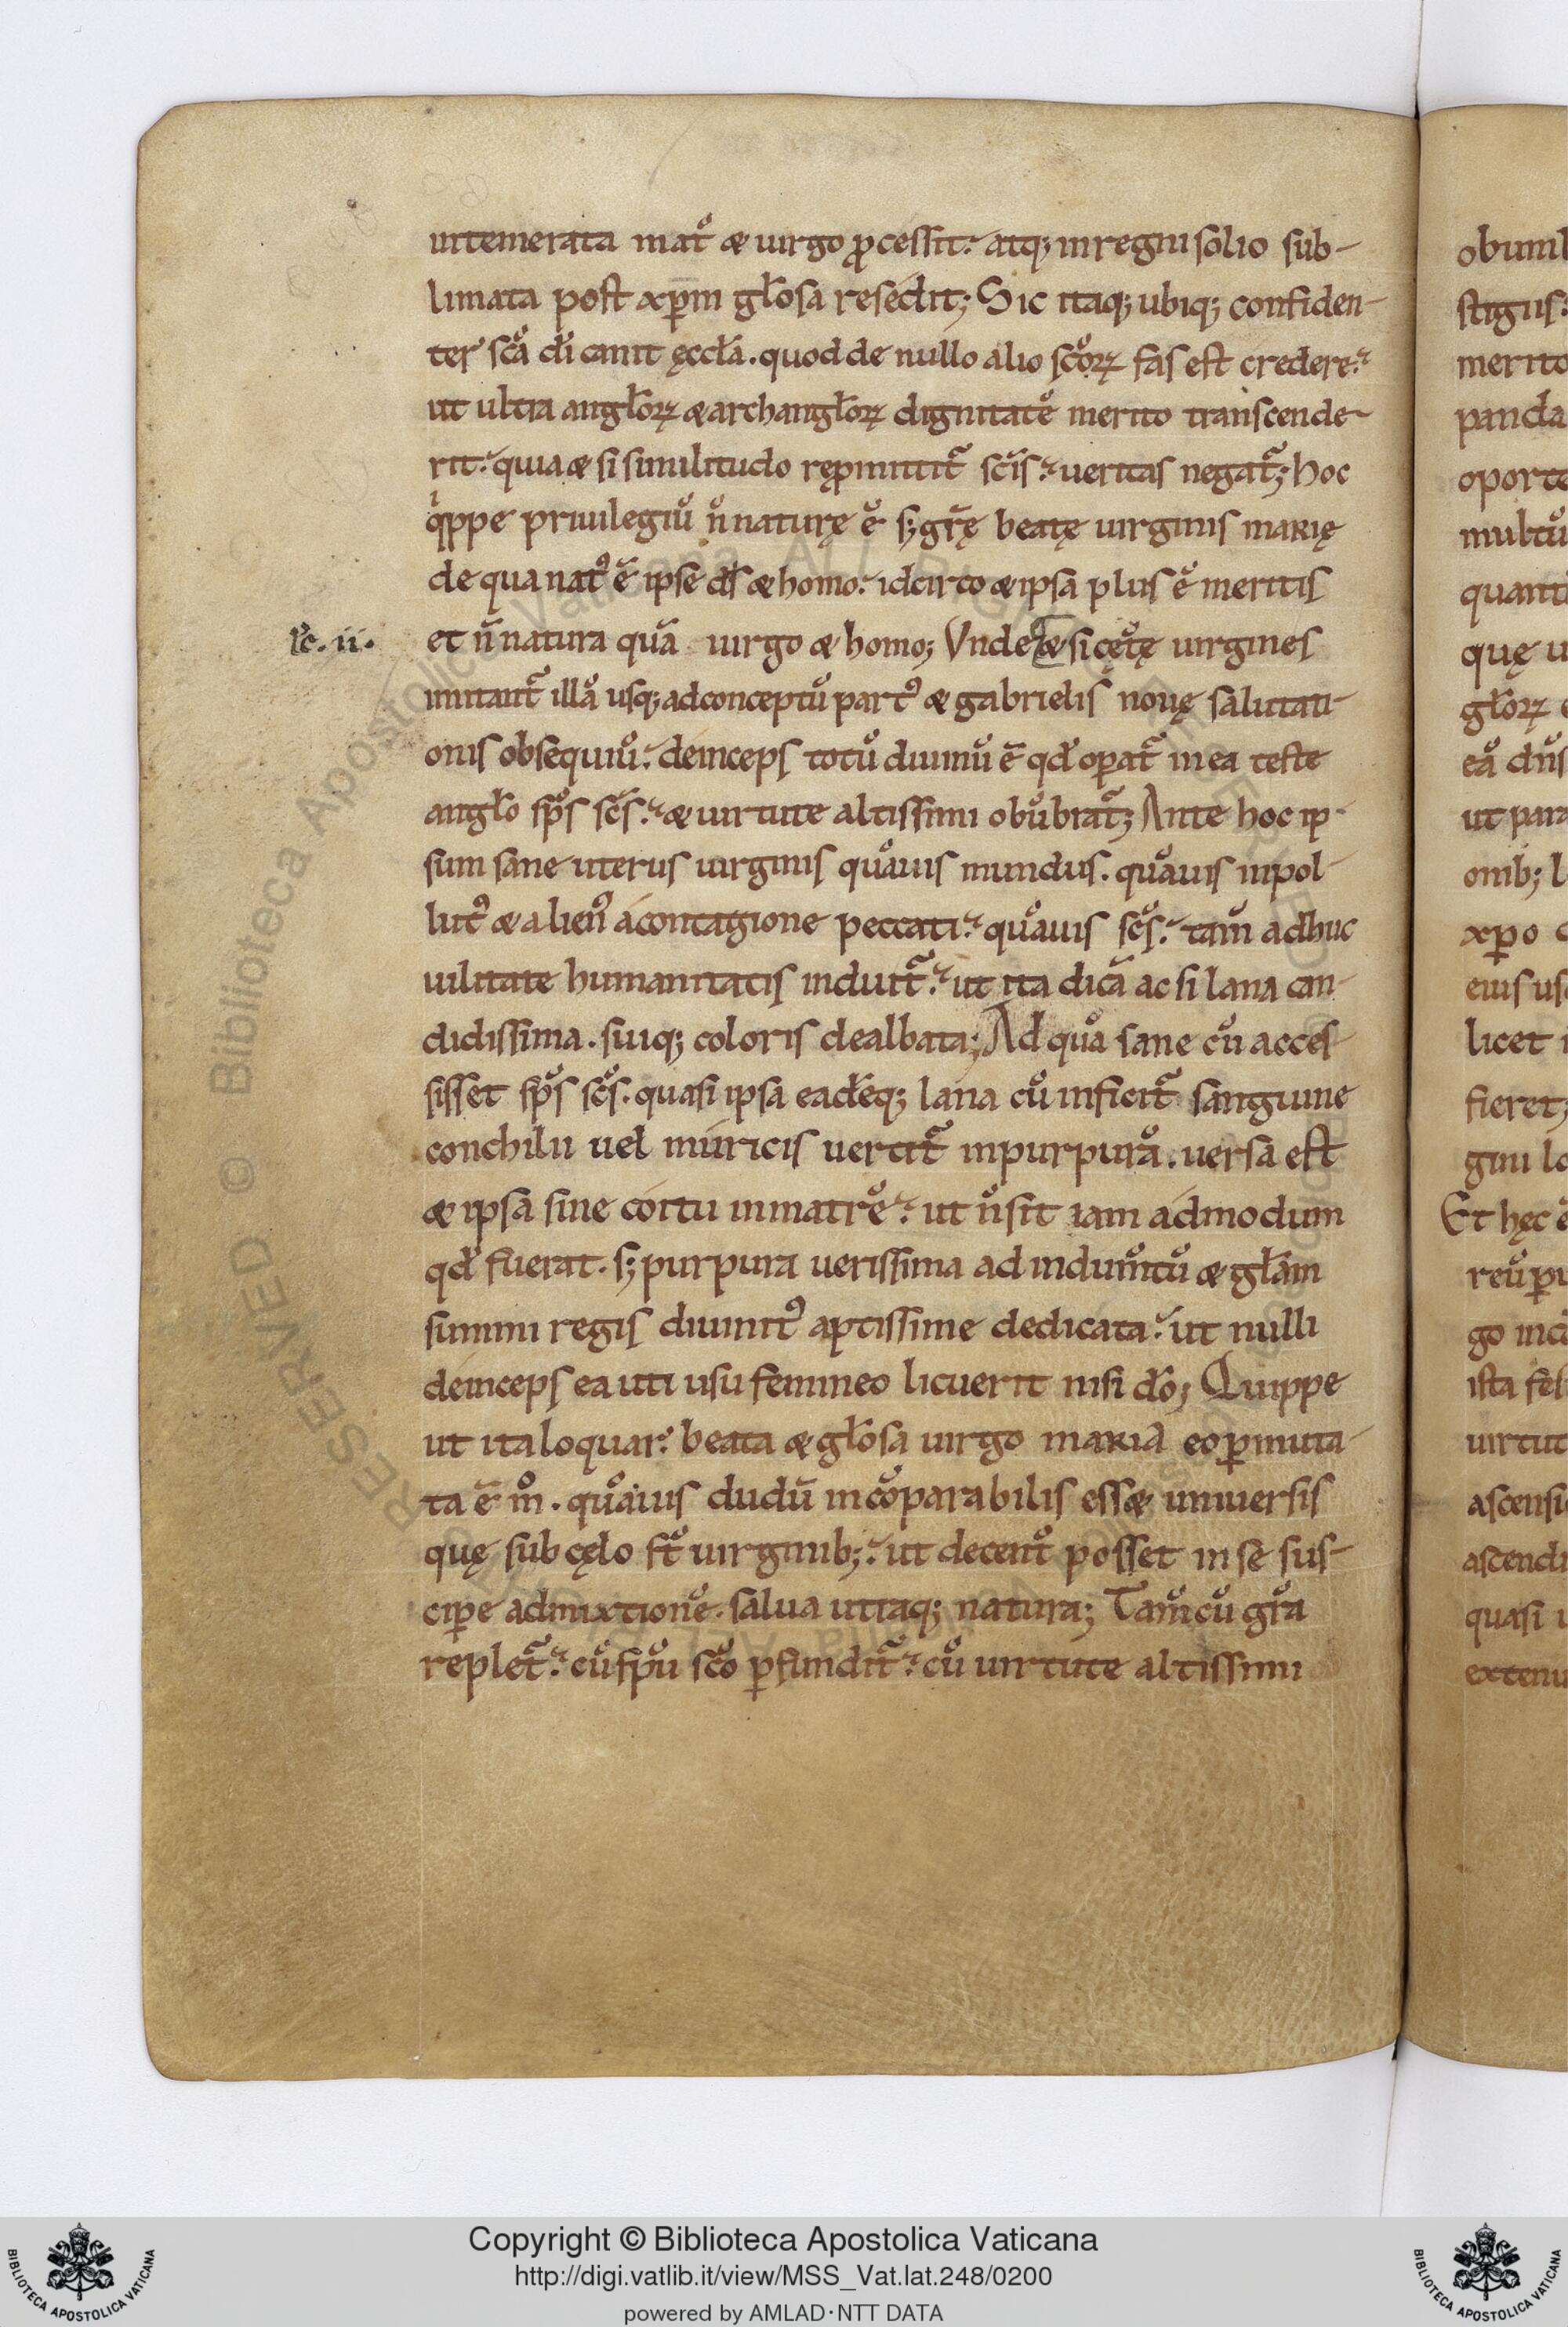 intemerata mat̄ & uirgo ꝓcessit. atq; in regni solio sub-
limata post xp̄m gl̄osa resedit; Sic itaq; ubiq; confiden-
ter sc̄a dī canit ęccl̄a. quod de nullo alio sc̄oꝝ fas est credere.
ut ultra angl̄oꝝ & archangl̄oꝝ dignitatē merito transcende-
rit. quia & si similitudo rępmittit᷑ sc̄is. ueritas negat᷑; hoc
qͥppe priuilegiū n̄ naturę ē s; gr̄ę beatę uirginis marię
de qua natꝰ ē ipse ds̄ & homo. idcirco & ipsa plus ē meritis
et n̄ natura quā uirgo & homo; Vnde & si cet̄ę uirgines
imitant᷑ illā usq; ad conceptū partꝰ & gabrielis nouę salutati-
onis obsequiū. deinceps totū diuinū ē qd̄ oꝑat᷑ in ea teste
angl̄o sp̄s sc̄s. & uirtute altissimi obūbrat᷑; Ante hoc ip-
sum sane uterus uirginis quāuis mundus. quāuis inpol-
lutꝰ & alienꝰ a contagione peccati. quāuis sc̄s. tam̄ adhuc
uilitate humanitatis induit᷑. ut ita dicā ac si lana can-
didissima. suiq; coloris dealbata; Ad quā sane cū acces-
sisset sp̄s sc̄s. quasi ipsa eadēq; lana cū inficit᷑ sanguine
conchilii uel muricis uertit᷑ in purpurā. uersa est
& ipsa sine coitu in matrē. ut n̄ sit iam admodum
qd̄ fuerat. s; purpura uerissima ad indum̄tū & gl̄am
summi regis diuinitꝰ aptissime dedicata. ut nulli
deinceps ea uti usu femineo licuerit nisi dō; Quippe
ut ita loquar. beata & gl̄osa uirgo maria eo ꝑmuta-
ta ē m̊. quāuis dudū incōparabilis ess& uniuersis
quę sub cęlo st̄ uirginib;. ut decent̄ posset in se sus-
ciꝑe admixtionē. salua utraq; natura; Tam̄ cū gr̄a
replet᷑. cū sp̄u sc̄o ꝑfundit᷑. cū uirtute altissimi
lc̄. ii.
obumb
stigiis.
merito
panda
oporte
multū
quanti
quę u
gl̄oꝝ
eā dn̄s
ut para
onib; l
xp̄o c
eius us
licet
fieret;
gini lo
Et hęc ē
go inc
ista fel
uirtut
ascensi
ascendi
quasi u
extenu
Copyright © Biblioteca Apostolica Vaticana
http://digi.vatlib.it/view/MSS_Vat.lat.248/0200
powered by AMLAD·NTT DATA
BIBLIOTECA APOSTOLICA VATICANA
BIBLIOTECA APOSTOLICA VATICANA